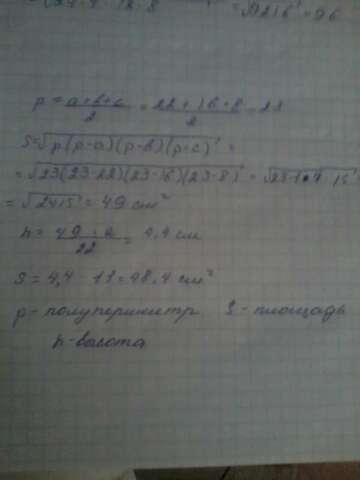 = √9216 = 96
p = a+b+c / 2 = 22+16+8 / 2 = 23
S=√p(p-a)(p-b)(p-c) =
= √23(23-22)(23-16)(23-8) = √23·1·7·15
= √2415 = 49 см²
h = 49·2 / 22 = 4,4 см
S = 4,4 · 11 = 48,4 см²
p - полупериметр S - площадь
h - высота